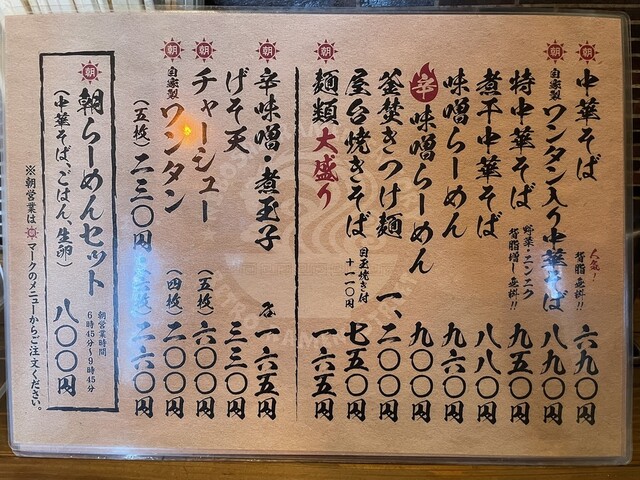 朝 中華そば 人気! 背脂無料!! 六九〇円
朝 自家製 ワンタン入り中華そば 八九〇円
特中華そば 野菜・ニンニク 背脂増し無料!! 九五〇円
煮干中華そば 八八〇円
味噌らーめん
辛 味噌らーめん
釜焚きつけ麺 一、二〇〇円
屋台焼きそば 目玉焼き付 +一一〇円 七五〇円
朝 麺類大盛り 一六五円
朝 辛味噌・煮玉子 各 一六五円
げそ天 三三〇円
朝 チャーシュー (五枚) 六〇〇円
朝 自家製 ワンタン (四枚) 二〇〇円
(五枚) 二三〇円 二六〇円
朝 朝らーめんセット
(中華そば、ごはん、生卵) 八〇〇円
朝営業時間
6時45分〜9時45分
※朝営業は朝マークのメニューからご注文ください。